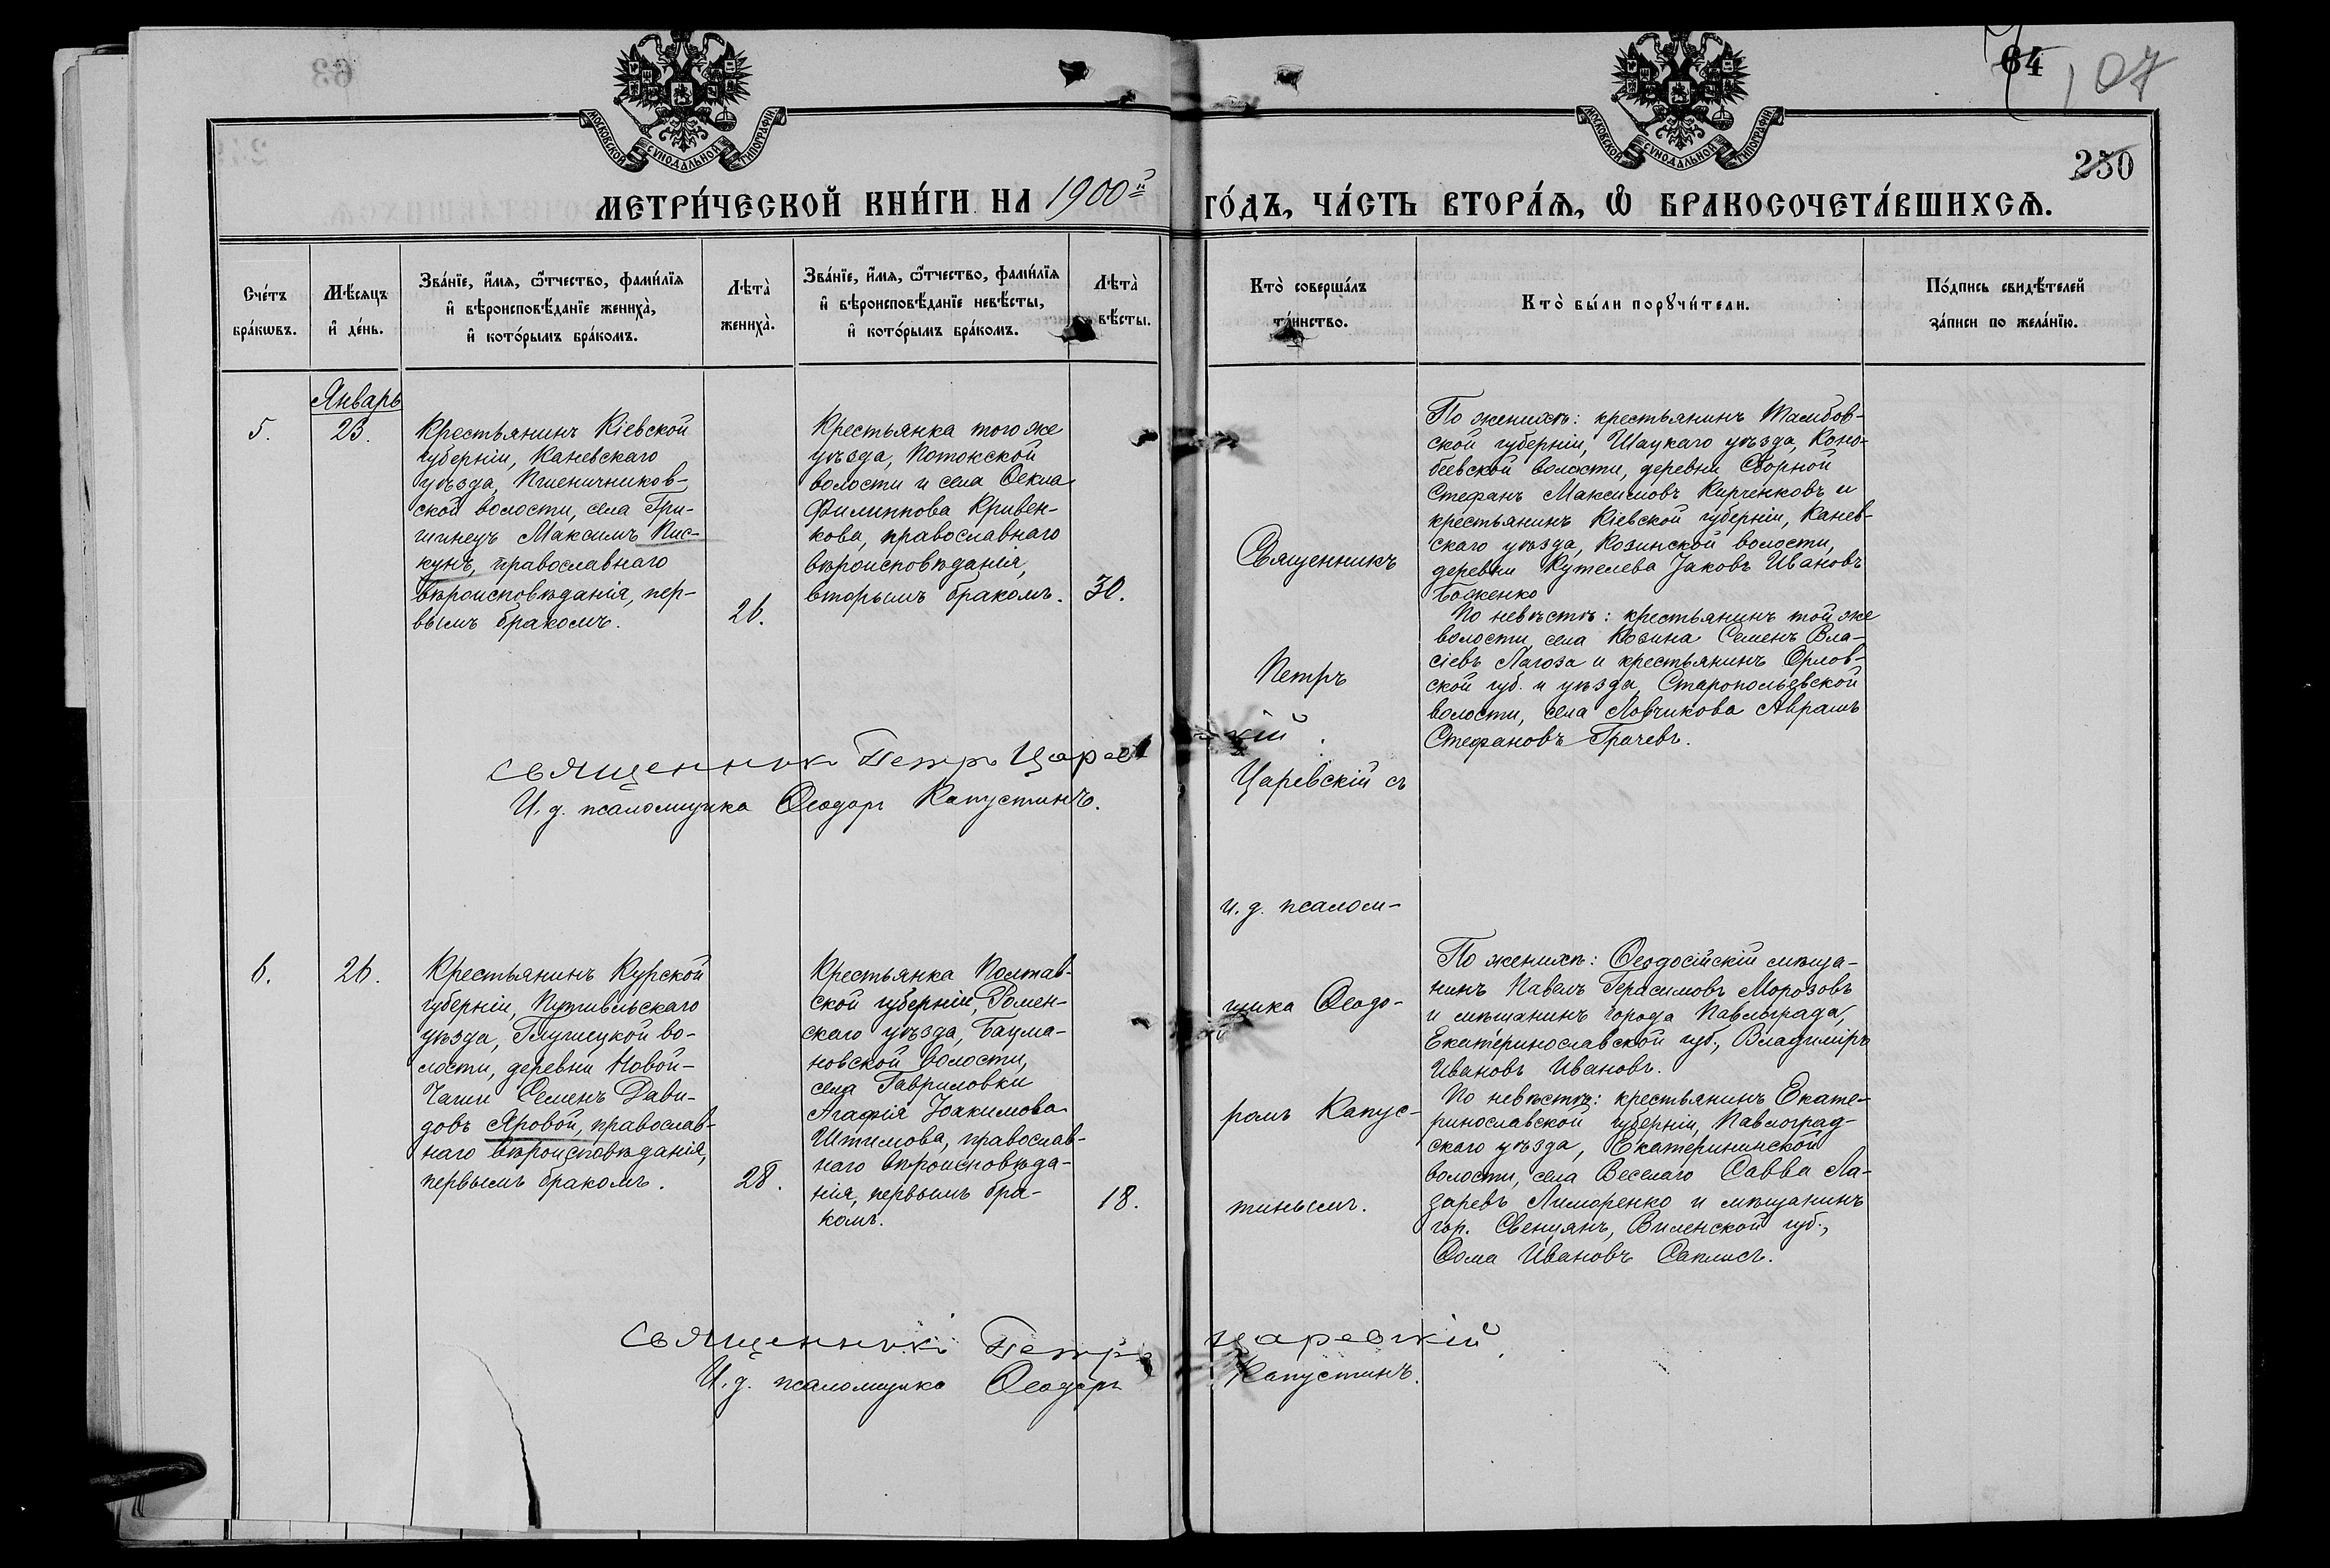 64
107
250
МОСКОВСКОЙ СѴНОДАЛЬНОЙ ТИПОГРАФІИ
МОСКОВСКОЙ СѴНОДАЛЬНОЙ ТИПОГРАФІИ
МЕТРИ́ЧЕСКОЙ КНИ́ГИ НА 1900й ГО́ДЪ, ЧА́СТЬ ВТОРА́Ѧ, Ѡ БРАКОСОЧЕТА́ВШИХСѦ.
Сче́тъ
бра́кѡвъ.
Мѣ́сѧцъ
и҆ де́нь.
Зва́нїе, и҆́мѧ, ѻ҆́тчество, фами́лїѧ
и҆ вѣроисповѣ́данїе жениха̀,
и҆ кото́рымъ бра́комъ.
Лѣта̀
жениха̀.
Зва́нїе, и҆́мѧ, ѻ҆́тчество, фами́лїѧ
и҆ вѣроисповѣ́данїе невѣ́сты,
и҆ кото́рымъ бра́комъ.
Лѣта̀
вѣ́сты.
Кто̀ соверша́лъ
та́инство.
Кто̀ бы́ли порꙋчи́тели.
По́дпись свидѣ́телей
за́писи по жела́нїю.
Январь
5.
23.
Крестьянинъ Кіевской
губерніи, Каневскаго
уѣзда, Пшеничников-
ской волости, села Гри-
шинецъ Максимъ Пис-
кунъ, православнаго
вѣроисповѣданія, пер-
вымъ бракомъ.
26.
Крестьянка того же
уѣзда, Потокской
волости и села Ѳекла
Филиппова Кривен-
кова, православнаго
вѣроисповѣданія,
вторымъ бракомъ.
30.
Священникъ
Петръ
Царевскій съ
и. д. псалом-
щика Ѳеодо-
ромъ Капус-
тинымъ.
По женихѣ: крестьянинъ Тамбов-
ской губерніи, Шацкаго уѣзда, Коно-
беевской волости, деревни Сборной
Стефанъ Максимовъ Кирченковъ и
крестьянинъ Кіевской губерніи, Канев-
скаго уѣзда, Козинской волости,
деревни Кутелева Іаковъ Ивановъ
Боженко
По невѣстѣ: крестьянинъ той же
волости, села Козина Семенъ Вла-
сіевъ Лагоза и крестьянинъ Орлов-
ской губ. и уѣзда, Старопольевской
волости, села Ловчикова Аврамъ
Стефановъ Грачевъ.
Священникъ Петръ Царевскій.
И. д. псаломщика Ѳеодоръ Капустинъ.
6.
26.
Крестьянинъ Курской
губерніи, Путивльскаго
уѣзда, Глушецкой во-
лости, деревни Новой-
Чаши Семенъ Дави-
довъ Яровой, православ-
наго вѣроисповѣданія,
первымъ бракомъ.
28.
Крестьянка Полтав-
ской губерніи, Ромен-
скаго уѣзда, Бацма-
новской волости,
села Гавриловки
Агафія Іоакимова
Штимова, православ-
наго вѣроисповѣда-
нія, первымъ бра-
комъ.
18.
По женихѣ: Ѳеодосійскій мѣща-
нинъ Павелъ Герасимовъ Морозовъ
и мѣщанинъ города Павлограда,
Екатеринославской губ., Владиміръ
Ивановъ Ивановъ.
По невѣстѣ: крестьянинъ Екате-
ринославской губерніи, Павлоград-
скаго уѣзда, Екатерининской
волости, села Веселаго Савва Ла-
заревъ Лимаренко и мѣщанинъ
гор. Свенцянъ, Виленской губ.,
Ѳома Ивановъ Саплисъ.
Священникъ Петръ Царевскій.
И. д. псаломщика Ѳеодоръ Капустинъ.